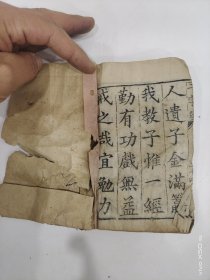 人遺子金滿籯
我教子惟一經
勤有功戲無益
戒之哉宜勉力